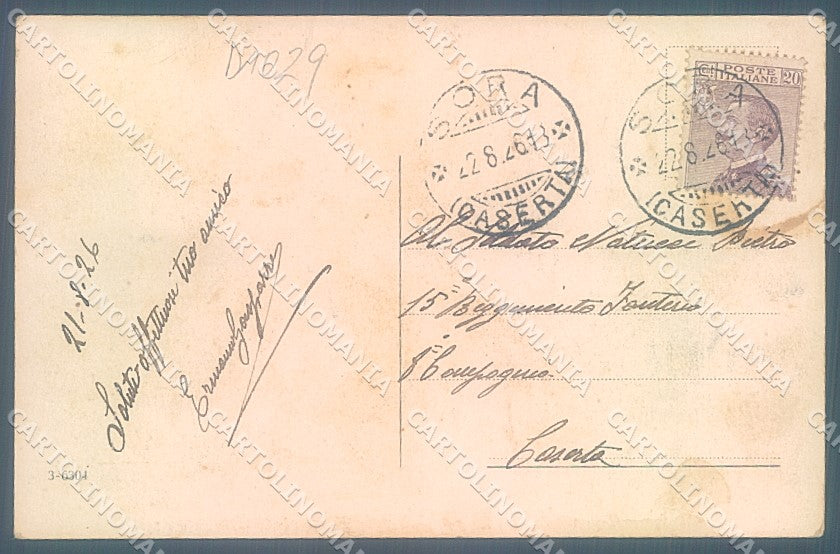 D1629
SORA
22.8.26.13
(CASERTA)
SORA
22.8.26.13
(CASERTA)
POSTE
ITALIANE
20
Al Soldato Natucci Pietro
15° Reggimento Fanteria
8ª Compagnia
Caserta
21-8-26
Saluti affettuosi tuo amico
3-6304
CARTOLINOMANIA